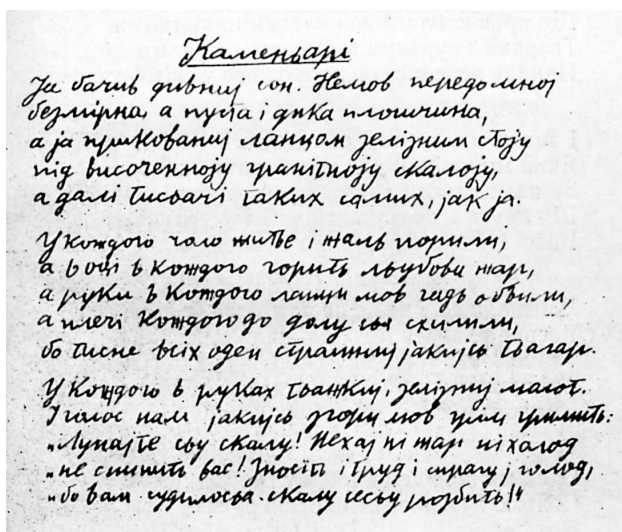 Каменьарі
Ја бачив дивниј сон. Немов передомноj
безмірна, а пуста і дика площчина,
а ја прикованиј ланцом желізним стоју
під височенноју гранітноју скалоју,
а далі тисьачі таких самих, јак ја.
У кождого чоло житьє і жаль порили,
а в очі в кождого горить льубови жар,
а руки в кождого ланци мов гадь обвили,
а плечі кождого до долу сьа схилили,
бо тисне всіх оден страшниј јакијсь тьагар.
У кождого в руках тьажкиј, желізниј молот.
І голос нам јакијсь згори мов грім гримить:
„Лупајте сьу скалу! Нехај ні жар ні холод
„не спинить вас! Зносіть і труд і спрагу ј голод,
„бо вам судилосьа скалу сесьу розбить!"